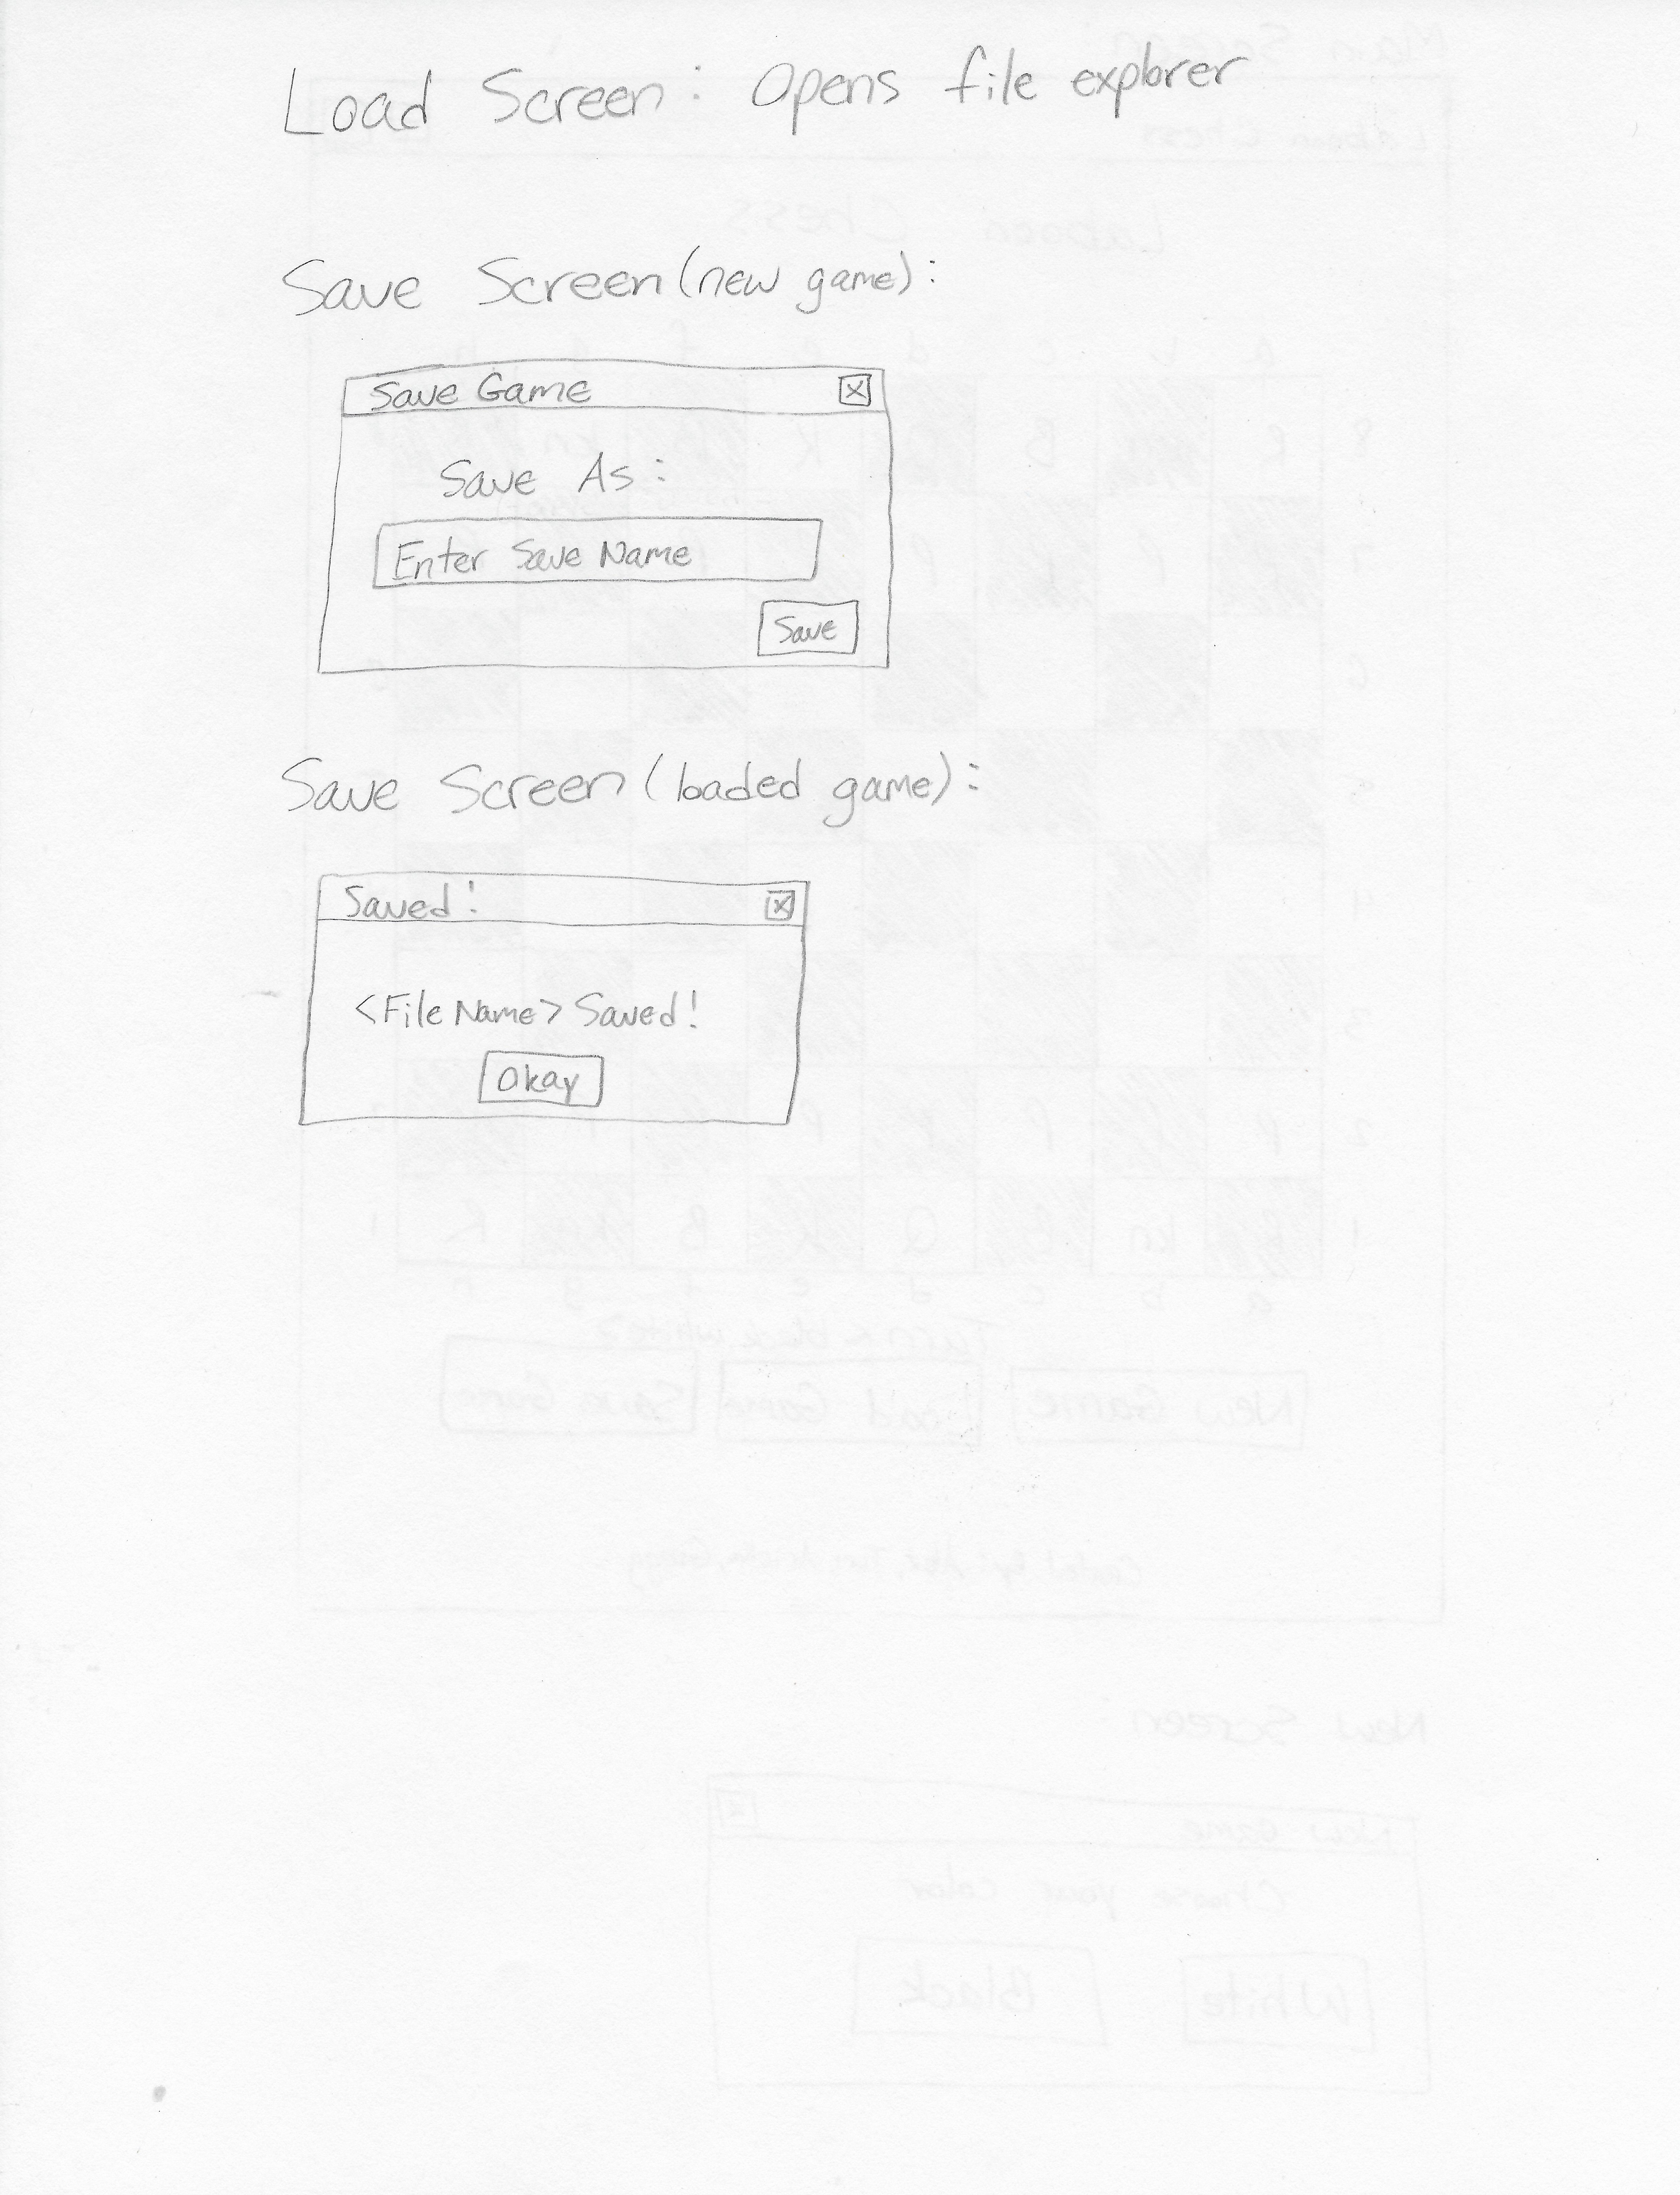 Load Screen: Opens file explorer
Save Screen (new game):
Save Game
Save As:
Enter Save Name
Save
Save Screen (loaded game):
Saved!
<File Name> Saved!
Okay